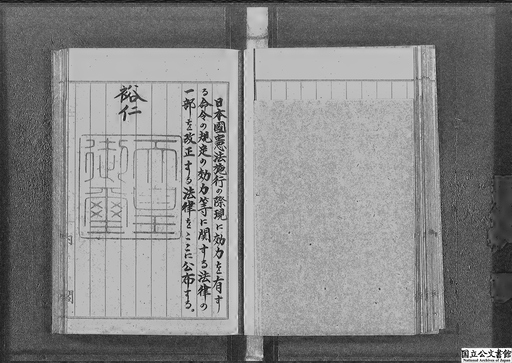 日本國憲法施行の際現に効力を有す
る命令の規定の効力等に関する法律の
一部を改正する法律をここに公布する。
裕仁
天皇御璽
国立公文書館
National Archives of Japan